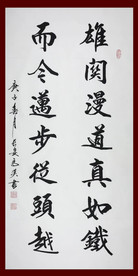 雄関漫道真如鐵
而今邁步從頭越
庚子春月